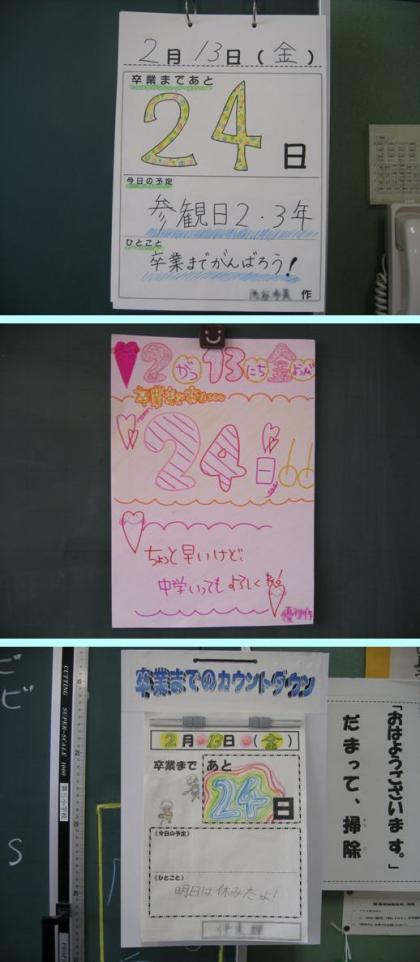 2月13日(金)
卒業まであと
24日
今日の予定
参観日2・3年
ひとこと
卒業までがんばろう!
作
2がつ13にち金ようび
卒業まであと...
24日
ちょっと早いけど、
中学いっても よろしくね
ビ
ビ
S
CUTTING SUPER-SCALE 1000
卒業までのカウントダウン
2月13日(金)
卒業まで あと
24日
(今日の予定)
(ひとこと)
明日は休みだよ!
「おはようございます。」
だまって、掃除